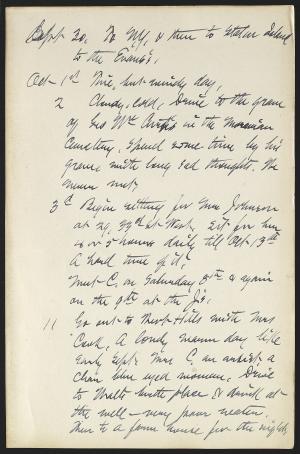 Sept 30. To N.Y., & then to Staten Island
to the Evans's.
Oct 1st Fine, but windy day.
2 Cloudy, cold, Drive to the grave
of Geo Wm Curtis in the Moravian
Cemetery, Spend some time by his
grave with long sad thoughts. We
never met.
3d Begin sitting for Mrs Johnson
at 29. 33rd st West. Sit for her
4 or 5 hours daily till Oct 13th
A hard time of it.
Met C. on Saturday 8th & again
on the 9th at the J's.
11 Go out to West Hills with Mrs
Cook, A lovely warm day like
Early Sept. Mrs C, an artist a
clear blue eyed woman. Drive
to Walt's birth place & drink at
the well — very poor water.
Then to a farm house for the night,